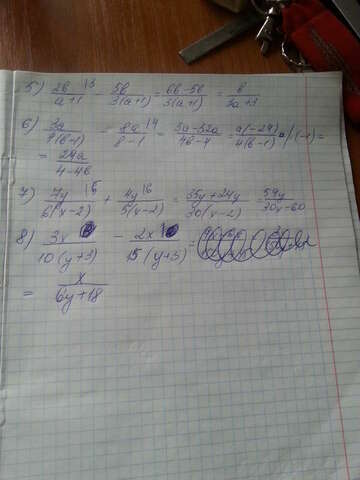 5) 2b/(a+1) |3 - 5b/3(a+1) = (6b-5b)/3(a+1) = b/(3a+3)
6) 3a/4(b-1) - 8a/(b-1) |4 = (3a-32a)/(4b-4) = a(-29)/4(b-1) |(-1) =
= 29a/(4-4b)
7) 7y/6(x-2) |5 + 4y/5(x-2) |6 = (35y+24y)/30(x-2) = 59y/(30x-60)
8) 3x/10(y+3) - 2x/15(y+3) =
= x/(6y+18)